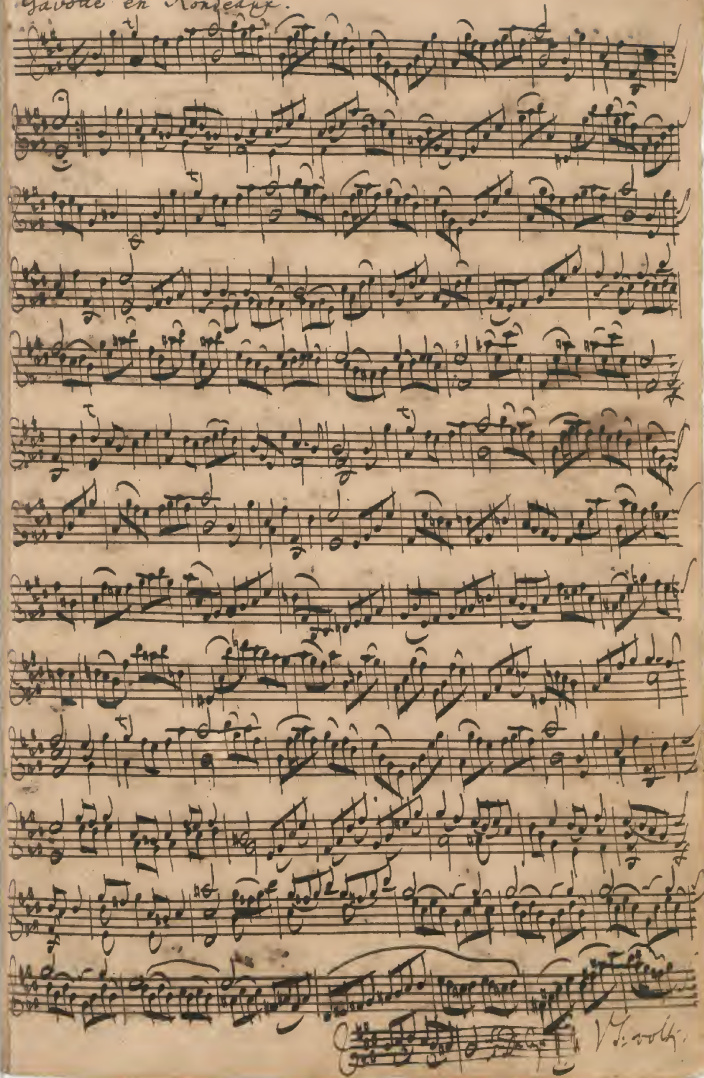 Gavotte en Rondeaux.
V. S. volti